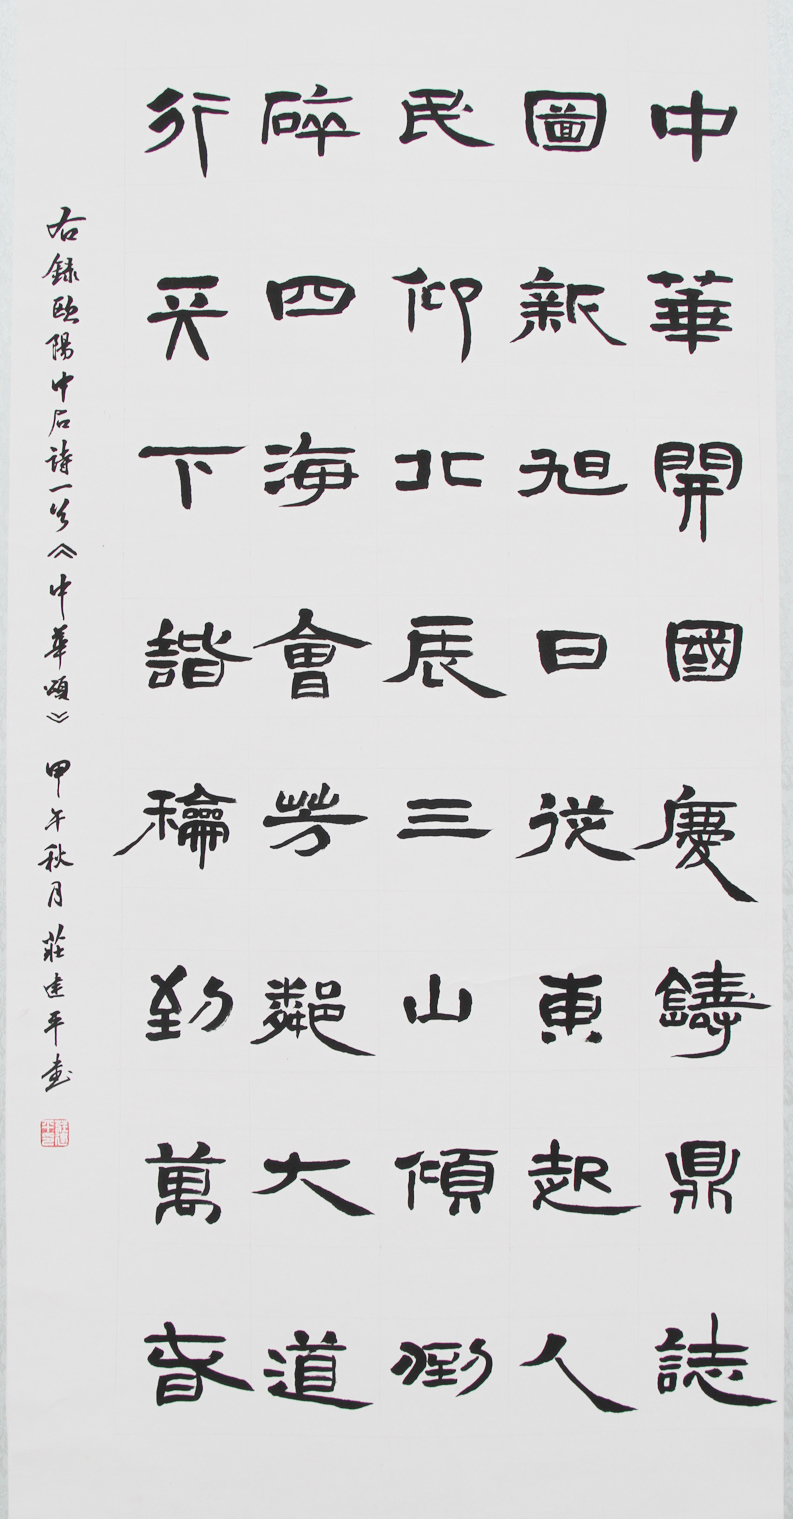 中華開國慶鑄鼎誌
圖新旭日從東起人
民仰北辰三山傾倒
碎四海會芳鄰大道
行天下諧龢到萬春
右録歐陽中石詩一首《中華頌》 甲午秋月 莊建平書